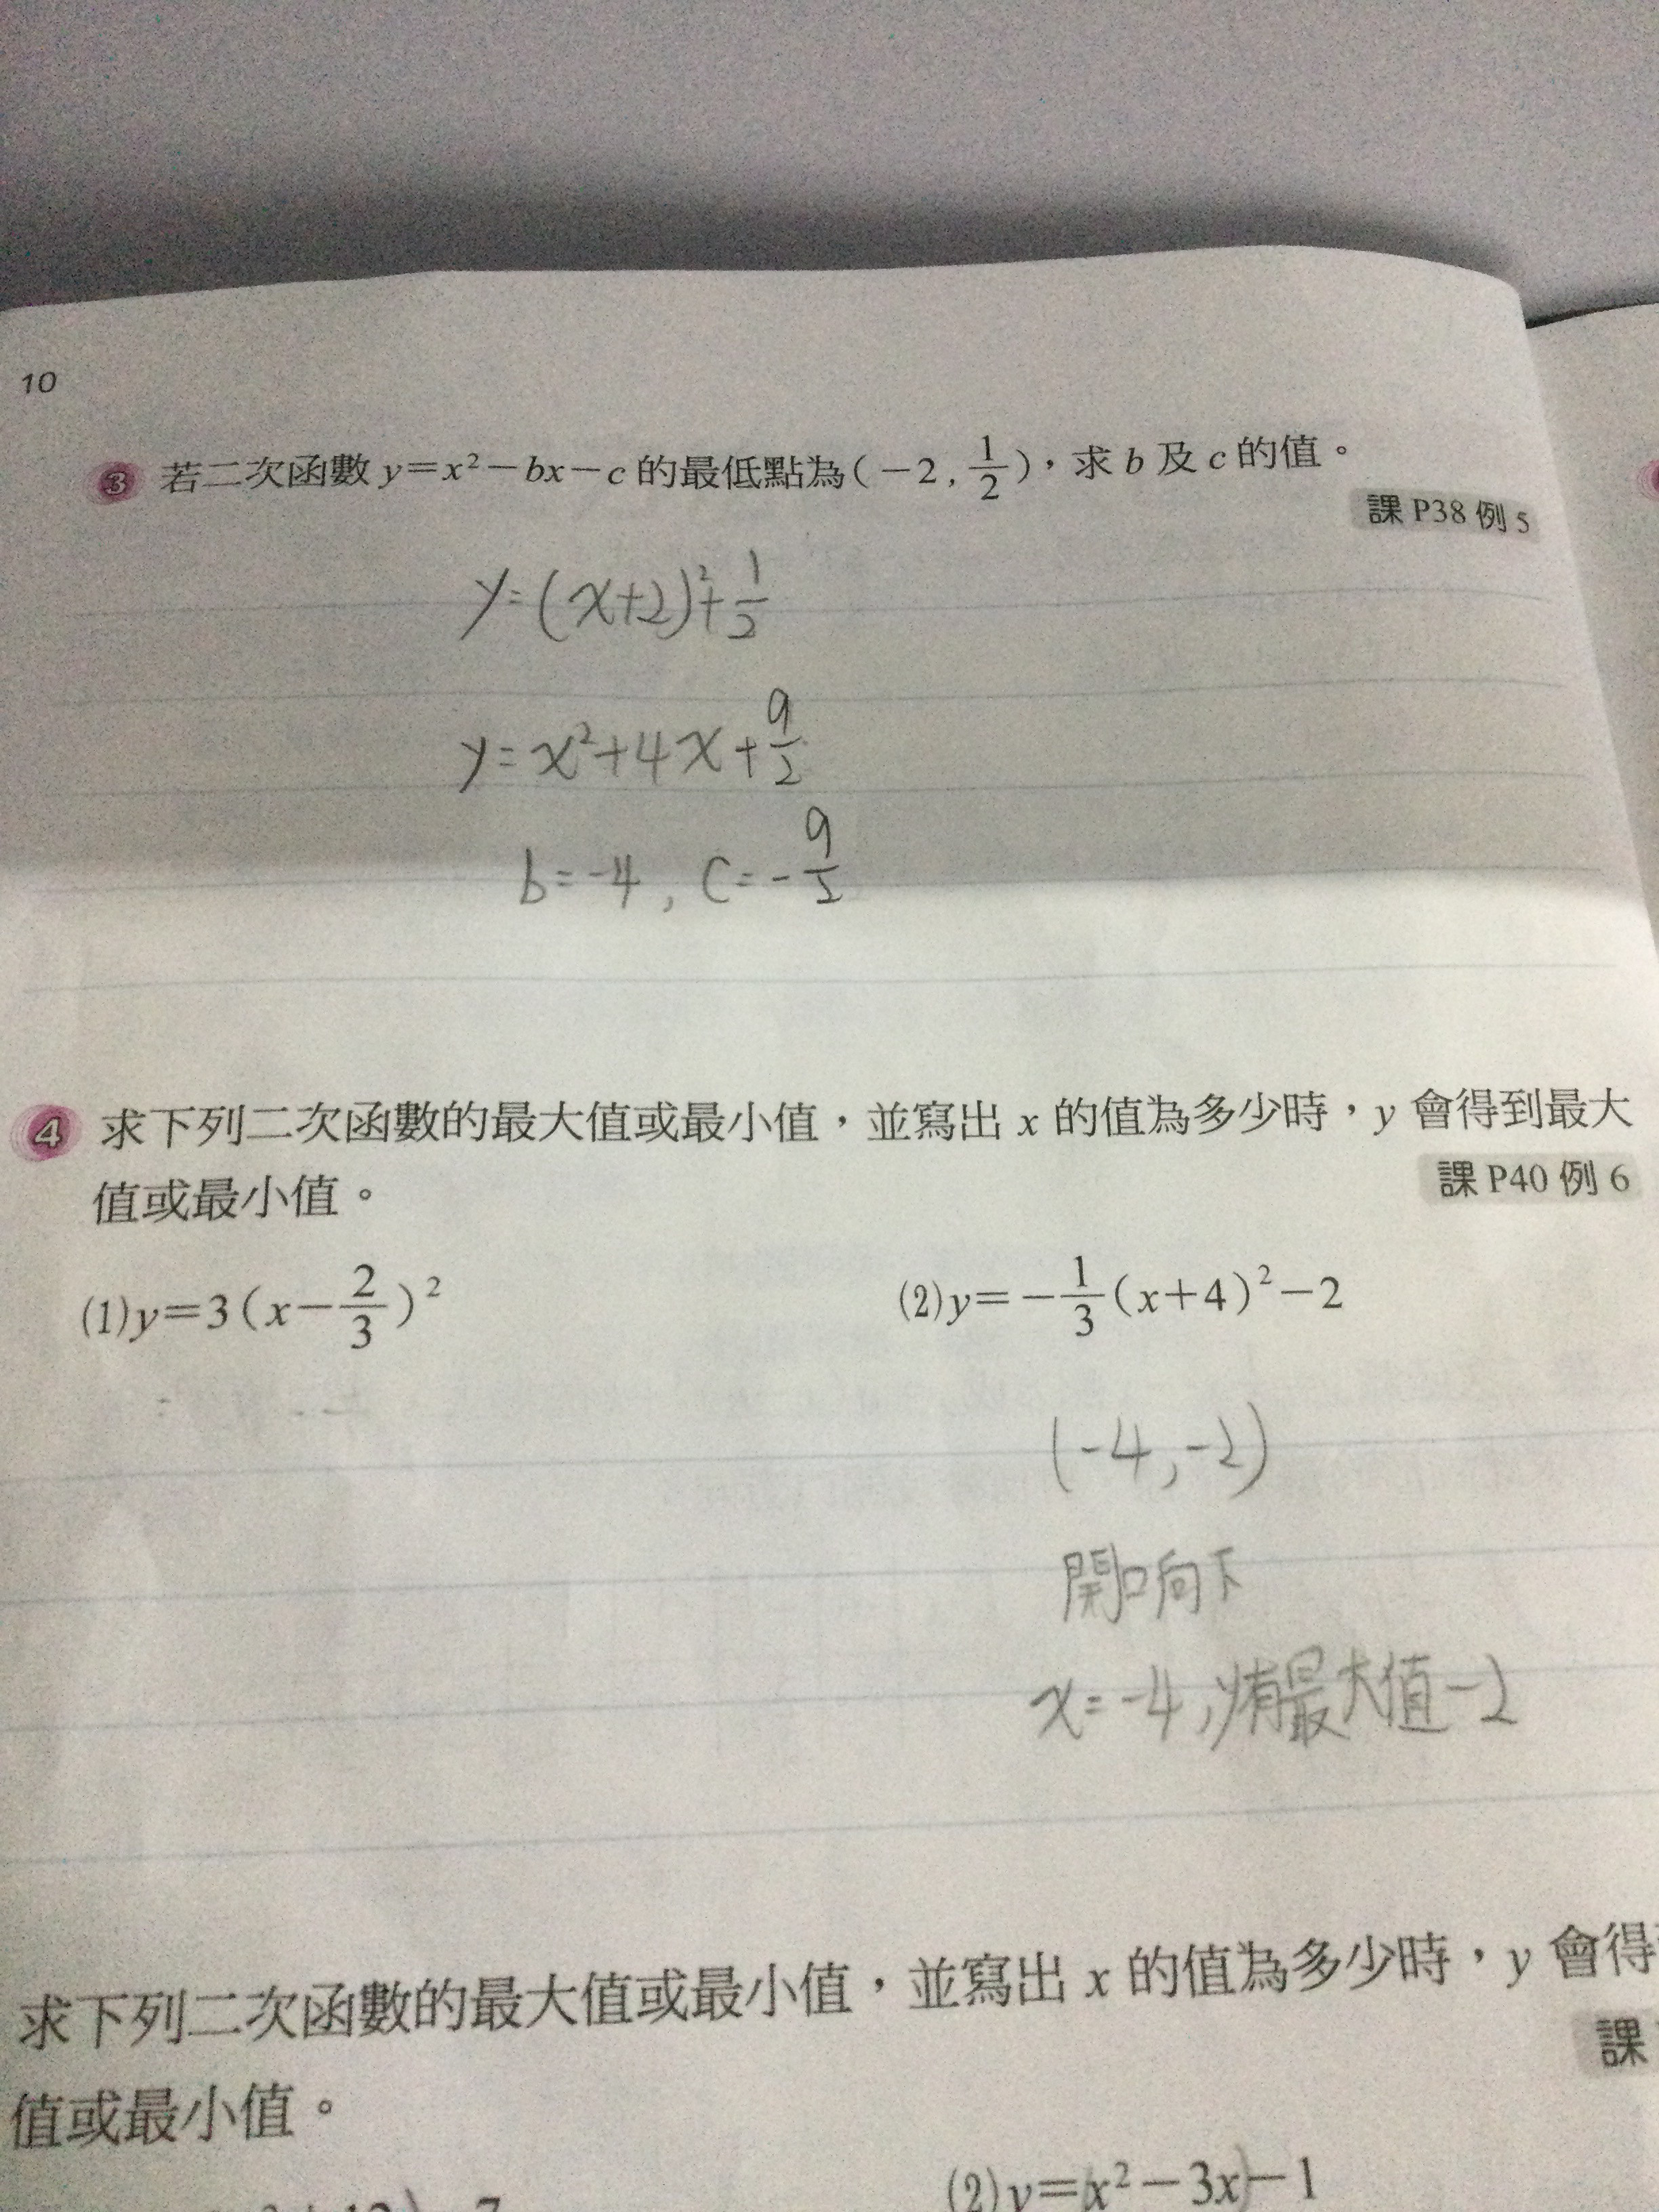 10
3 若二次函數 y=x²-bx-c 的最低點為(-2, 1/2),求 b 及 c 的值。
課 P38 例 5
y=(x+2)²+1/2
y=x²+4x+9/2
b=-4, c=-9/2
4 求下列二次函數的最大值或最小值,並寫出 x 的值為多少時,y 會得到最大
值或最小值。
課 P40 例 6
(1)y=3(x-2/3)²
(2)y=-1/3(x+4)²-2
(-4,-2)
開口向下
x=-4,y有最大值-2
求下列二次函數的最大值或最小值,並寫出 x 的值為多少時,y 會得
課
值或最小值。
(2)y=(x²-3x)-1